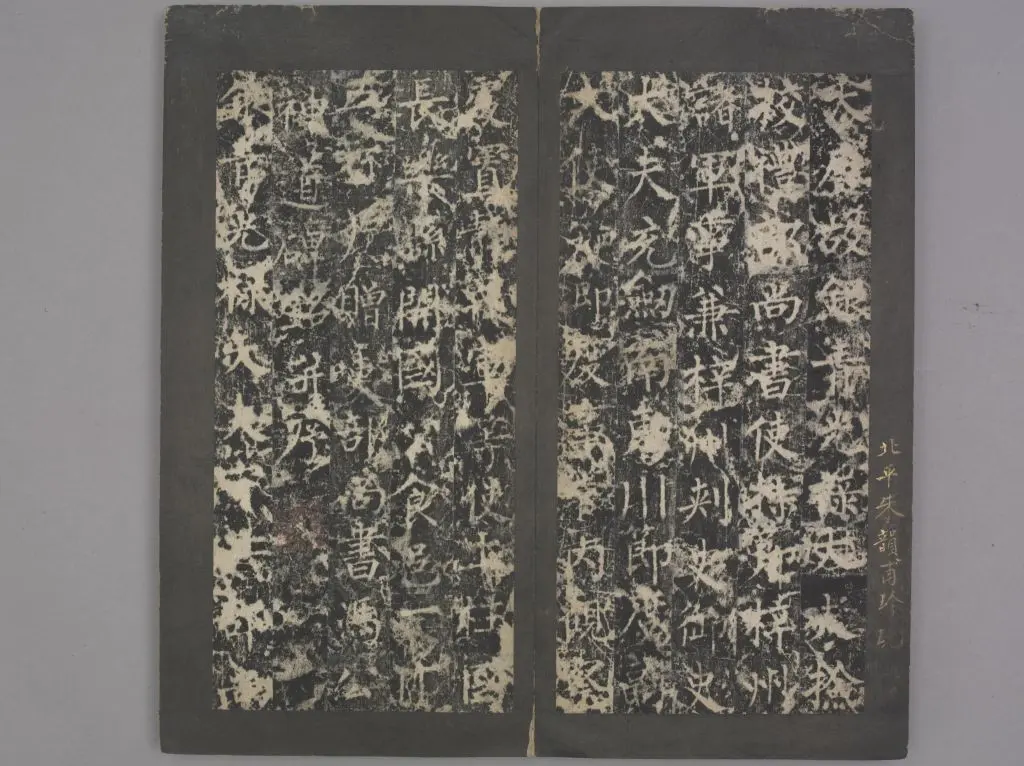 北平朱韻甫珍
大唐故銀青光祿大夫檢
校禮部尚書使持節梓州
諸軍事兼梓州刺史御史
大夫充劍南東川節度副
大使知節度事管內觀察
處置靜戎軍等使上柱國
長樂縣開國公食邑一千
五百戶贈吏部尚書馮公
神道碑銘并序
銀青光祿大夫